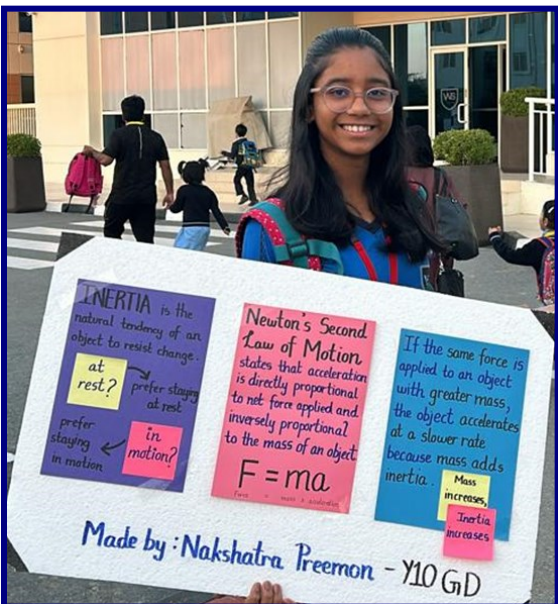 INERTIA is the
natural tendency of an
object to resist change.
at
rest?
prefer staying
at rest
in
motion?
prefer
staying
in motion
Newton's Second
Law of Motion
states that acceleration
is directly proportional
to net force applied and
inversely proportional
to the mass of an object
F = ma
Force = mass x acceleration
If the same force is
applied to an object
with greater mass,
the object accelerates
at a slower rate
because mass adds
inertia.
Mass
increases,
Inertia
increases
Made by : Nakshatra Preemon - Y10 GD